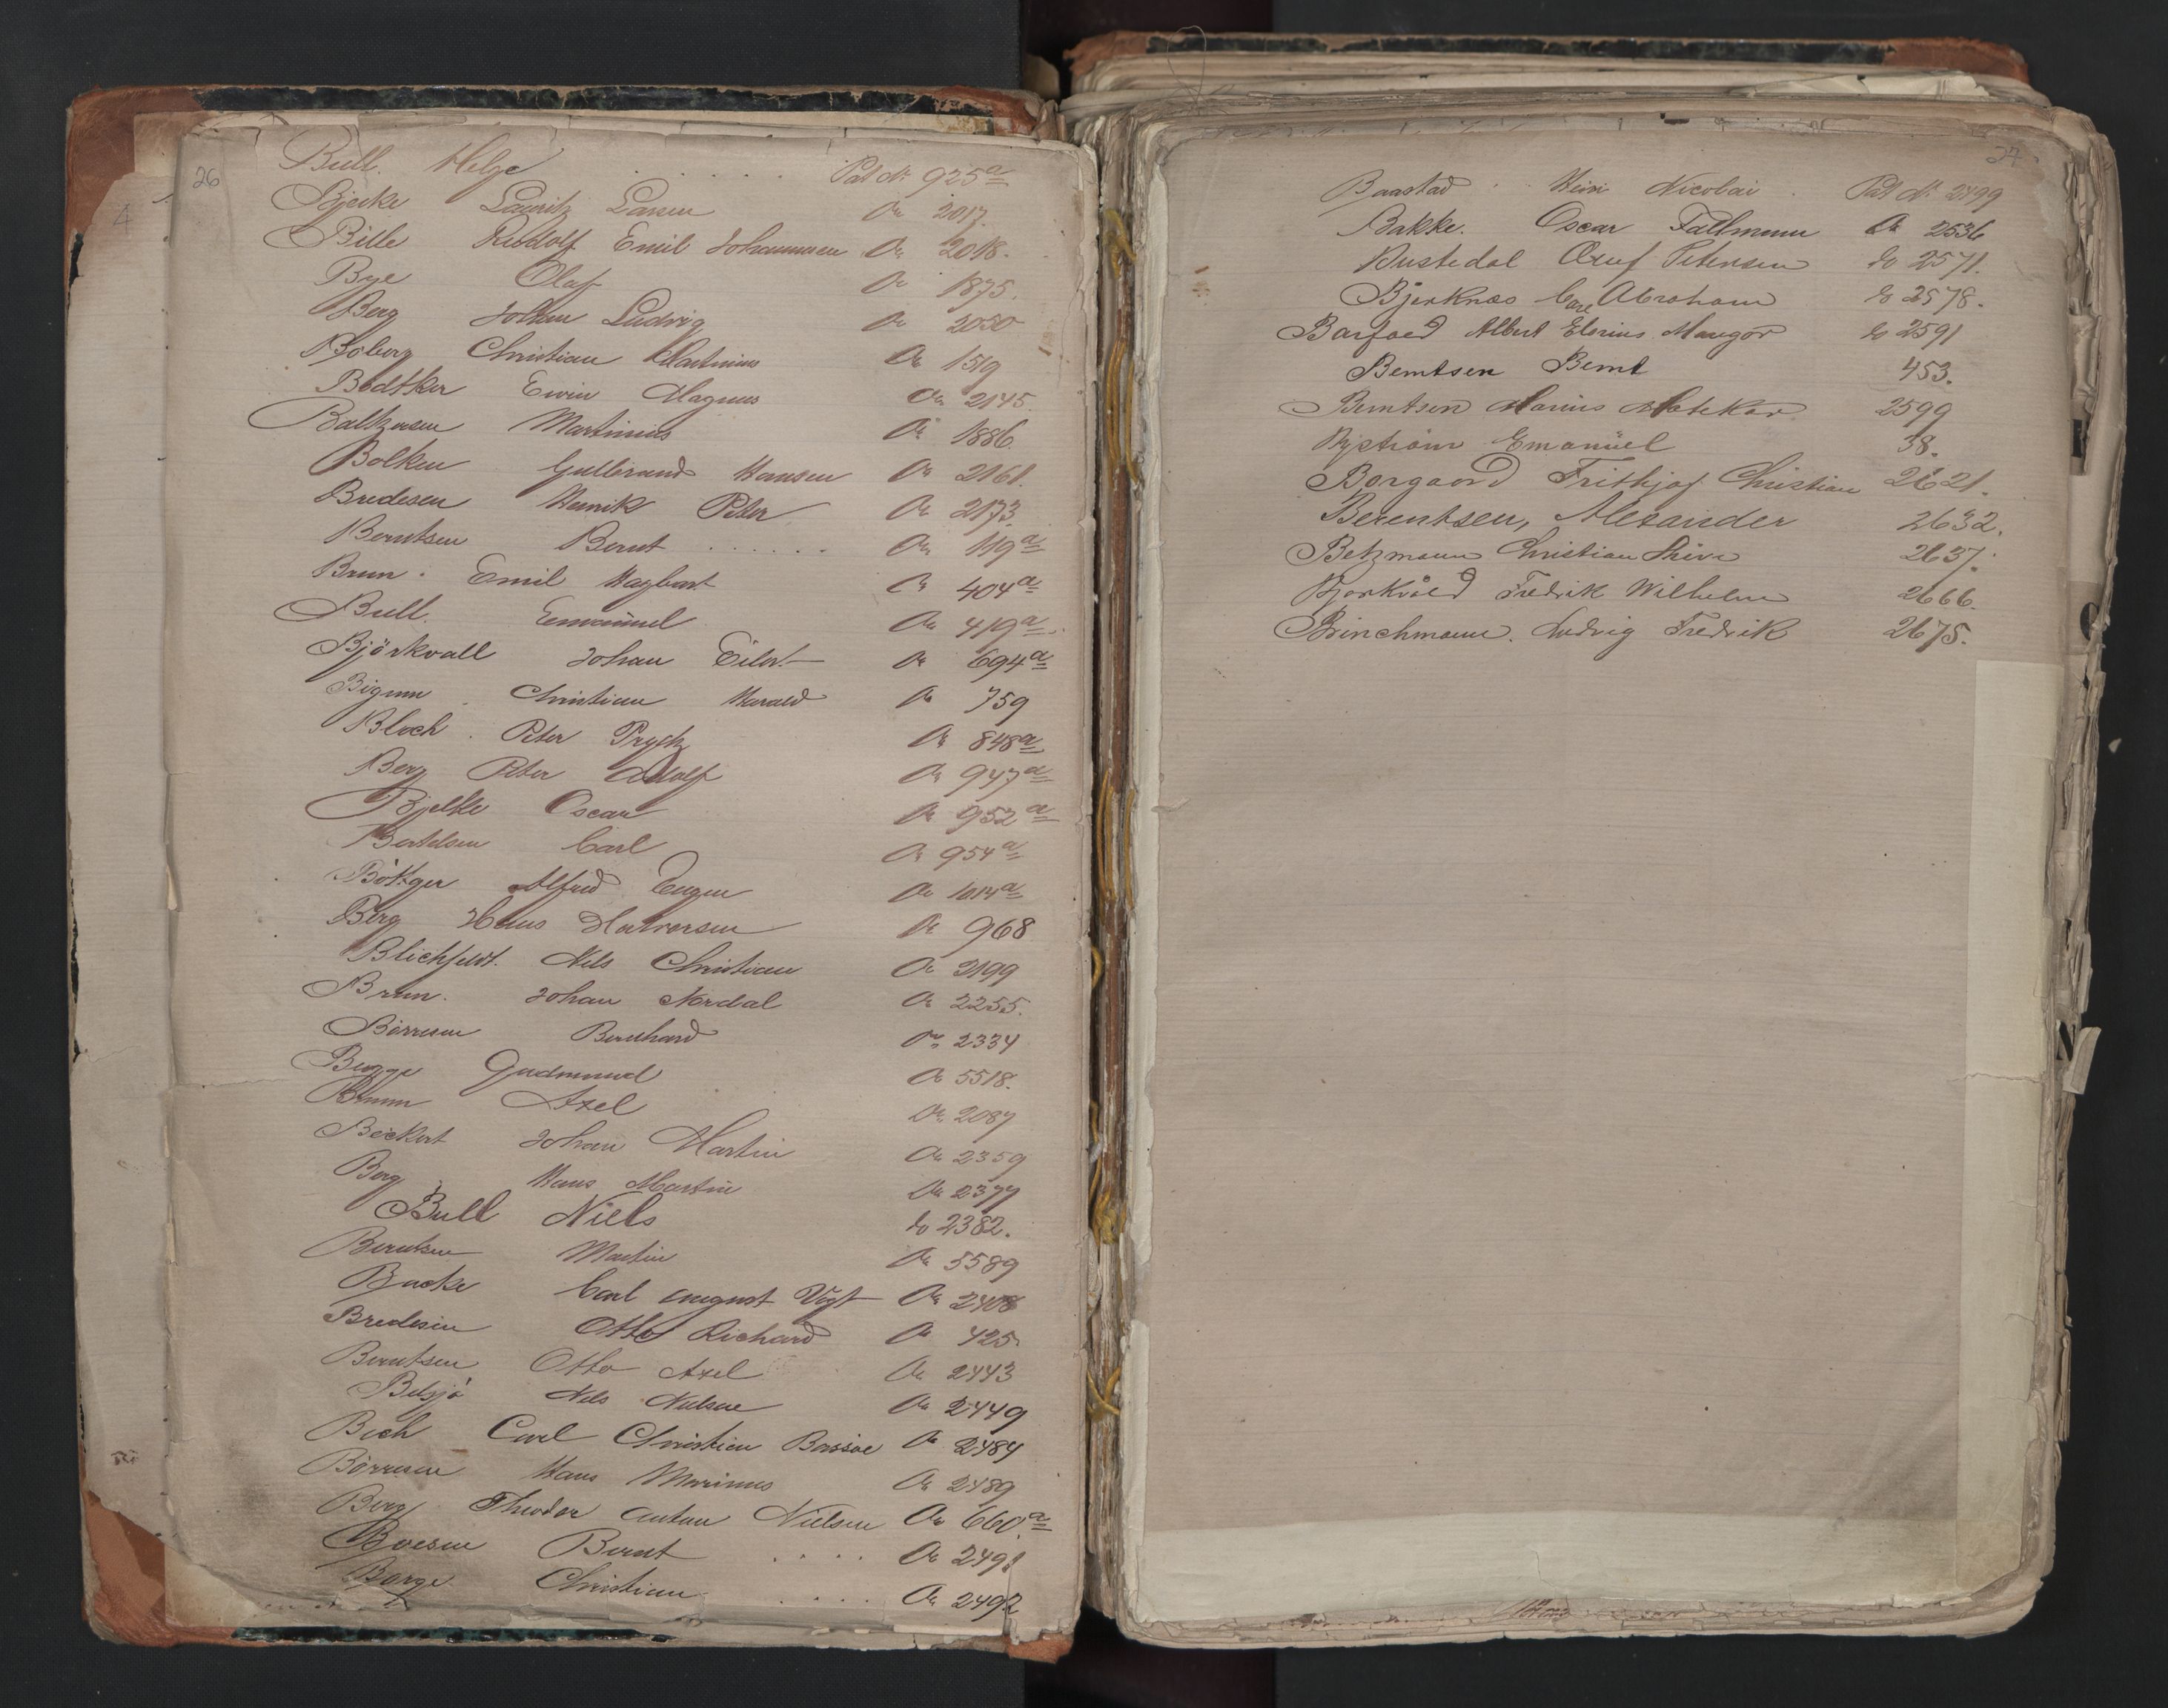 26
Bull. Helge . . . . . . Pat Nr 925a
Bjerke Lauritz Larsen Do 2017.
Bille Rudolf Emil Johannesen Do 2018.
Bye Olaf Do 1875.
Berg Johan Ludvig Do 2050
Boberg Christian Martinius Do 1519
Bødtker Eivin Magnus Do 2145
Baltzersen Martinius Do 1886.
Bolken Gulbrand Hansen Do 2161.
Bredesen Henrik Peter Do 2173.
Berntsen Bernt . . . . . . Do 119a
Brun. Emil Hagbart Do 404a
Bull. Emanuel Do 419a
Björkvall Johan Eilert Do 694a
Bigum Christian Harald Do 759
Bloch. Peter Prytz Do 848a
Berg Peter Adolf Do 947a
Bjelke Oscar Do 952a
Bertelsen Carl Do 954a
Böttger Alfred Eugen Do 1014a
Berg Hans Halvorsen Do 968
Blichfeldt. Nils Christian Do 2199
Brun. Johan Nordal Do 2255.
Børresen Bernhard Do 2334
Bugge Gudmund Do 5518.
Blum Axel Do 2087
Beckert Johan Martin Do 2359
Berg Hans Martin Do 2377
Bull Niels do 2382.
Berntsen Martin Do 5589
Backe Carl August Vogt Do 2408
Bredesen Otto Richard Do 425
Berntsen Otto Axel Do 2443
Belsjø Nils Nielsen Do 2449
Bech Carl Christian Bassøe Do 2484
Børresen Hans Marinus Do 2489
Berg Theodor Anton Nielsen Do 660a
Boesen Bernt . . . . Do 2491
Borge Christian . . . . Do 2492
27
Baastad . . Nicolai . Pat Nr 2499
Bakke. Oscar Fallmann Do 2536
Bustedal Oluf Petersen do 2571.
Bjerknæs Carl Abraham do 2578.
Barfoed Albert Elenius Mangor do 2591
Berntsen Bernt 453.
Berntsen Marius 2599
Byström Emanuel 38.
Borgaard Frithjof Christian 2621.
Berentsen, Alexander 2632.
Betzmann Christian 2637.
Bjorkvold Fredrik Wilhelm 2666.
Brinchmann. Ludvig Fredrik 2675.